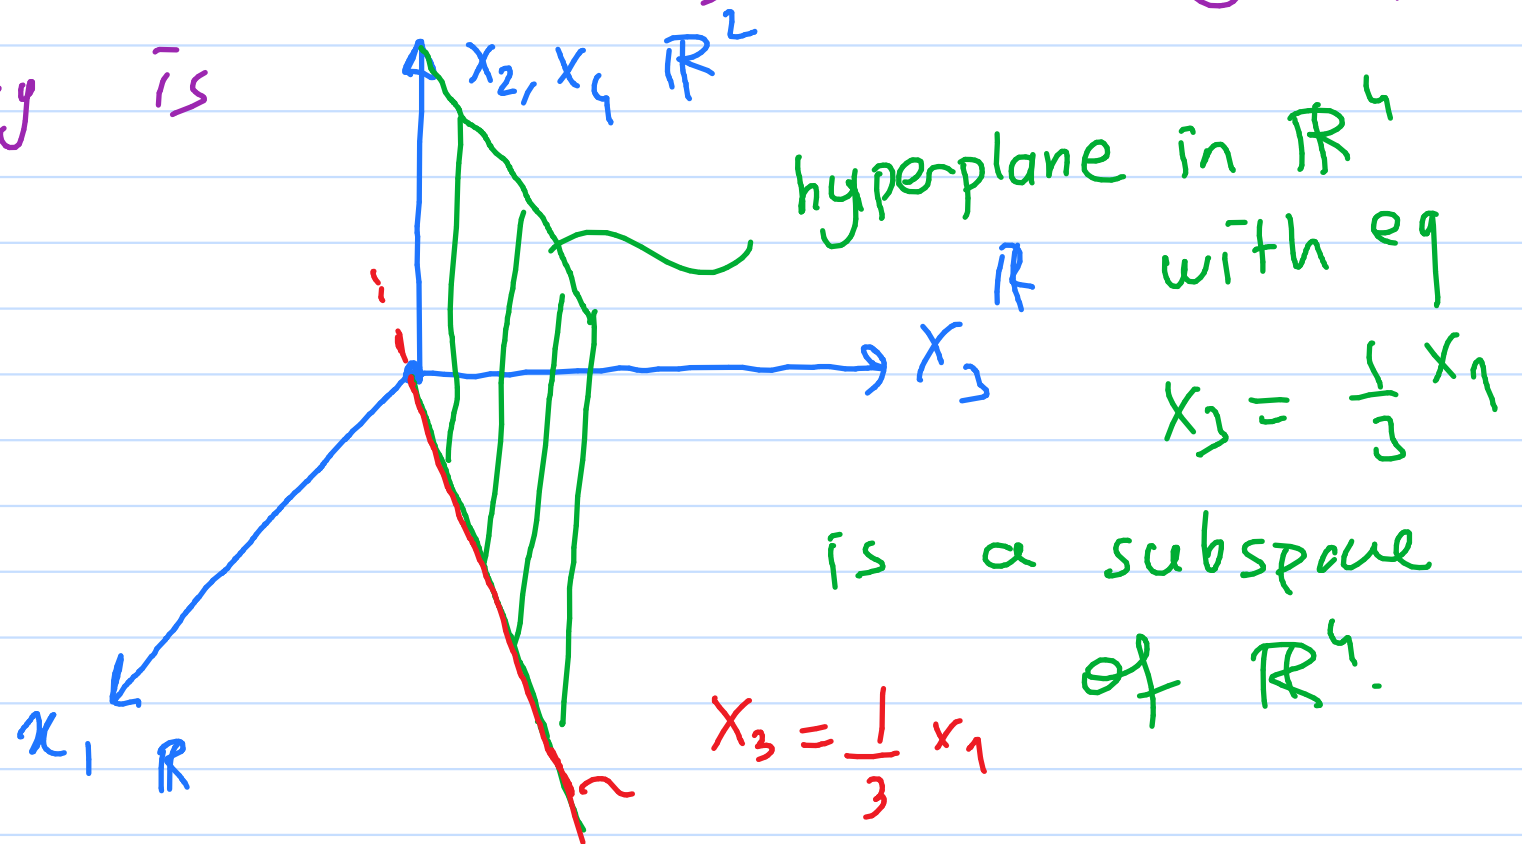 y is
x₂, x₄ ℝ²
hyperplane in ℝ⁴
with eq
ℝ
x₃
x₃ = 1/3 x₁
is a subspace
of ℝ⁴.
x₃ = 1/3 x₁
x₁ ℝ